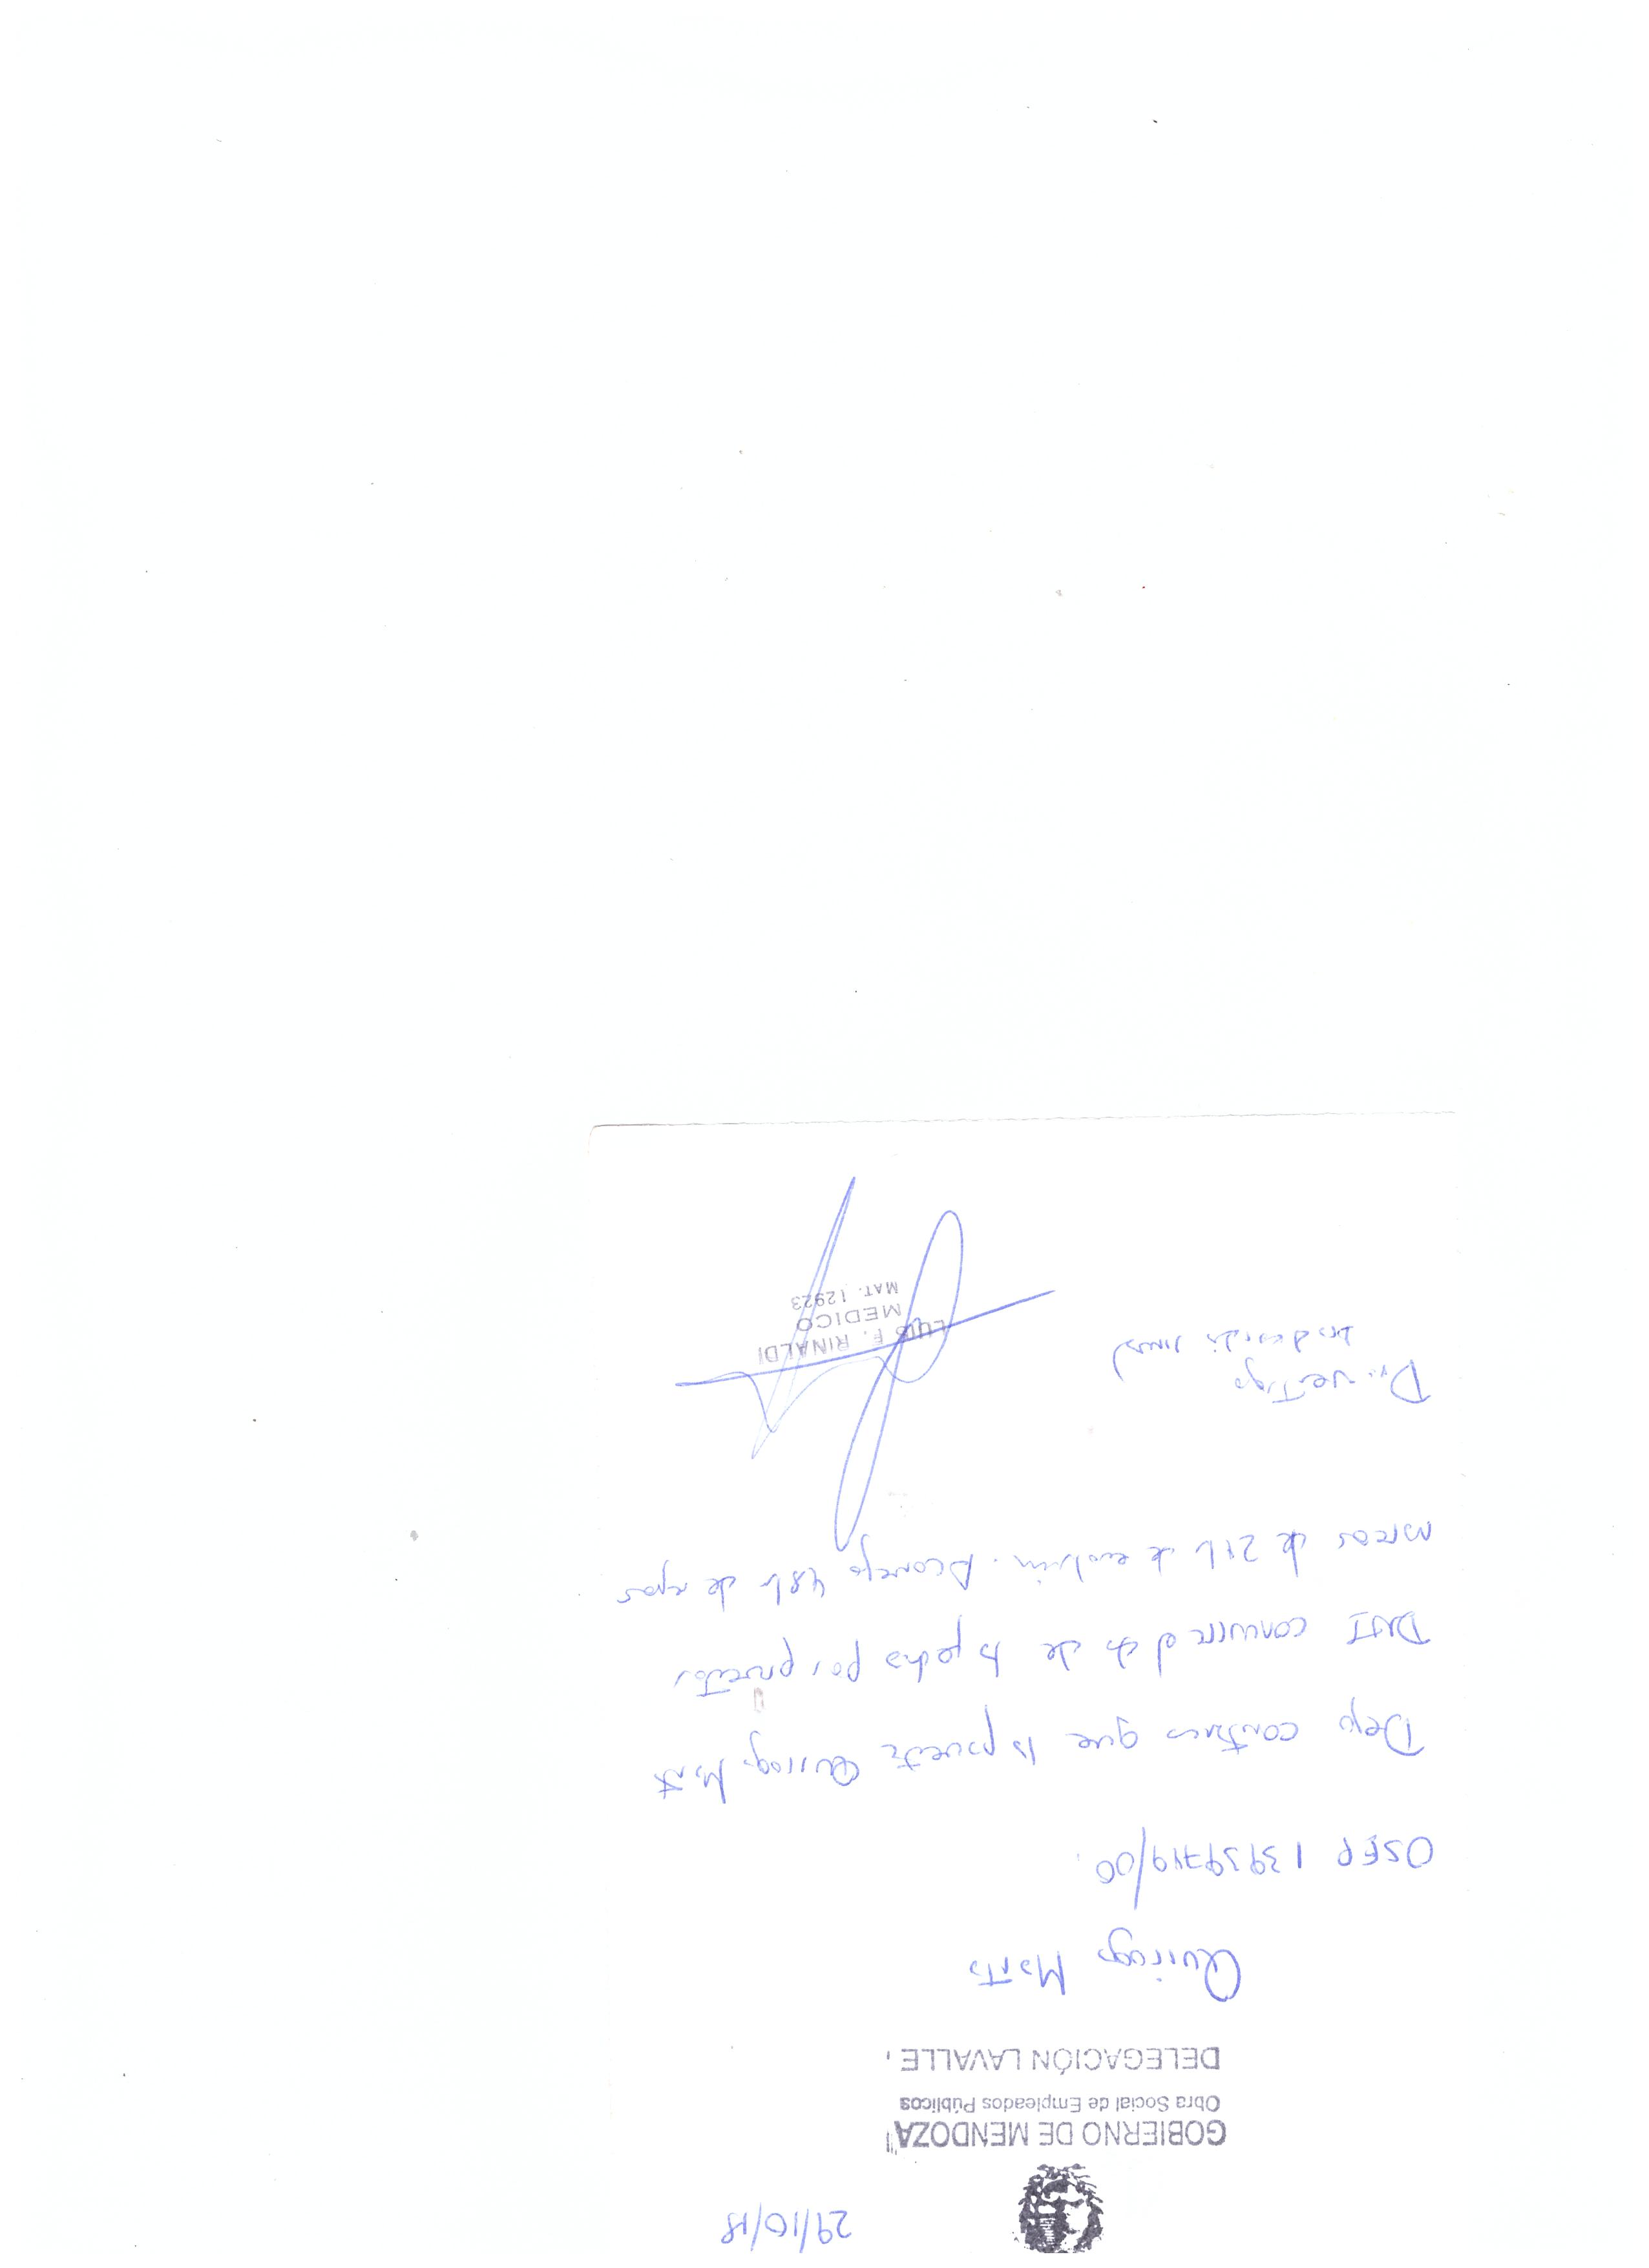 29/10/18
GOBIERNO DE MENDOZA
Obra Social de Empleados Públicos
DELEGACIÓN LAVALLE
Quiroga Marta
OSEP 13939749/00
Dejo constancia que la paciente Quiroga Marta
DNI concurre el de la fecha por presentar
mareos de 24h de evolución. Aconsejo 48h de reposo
Dx: vertigo
LUIS F. RINALDI
MEDICO
MAT. 12923